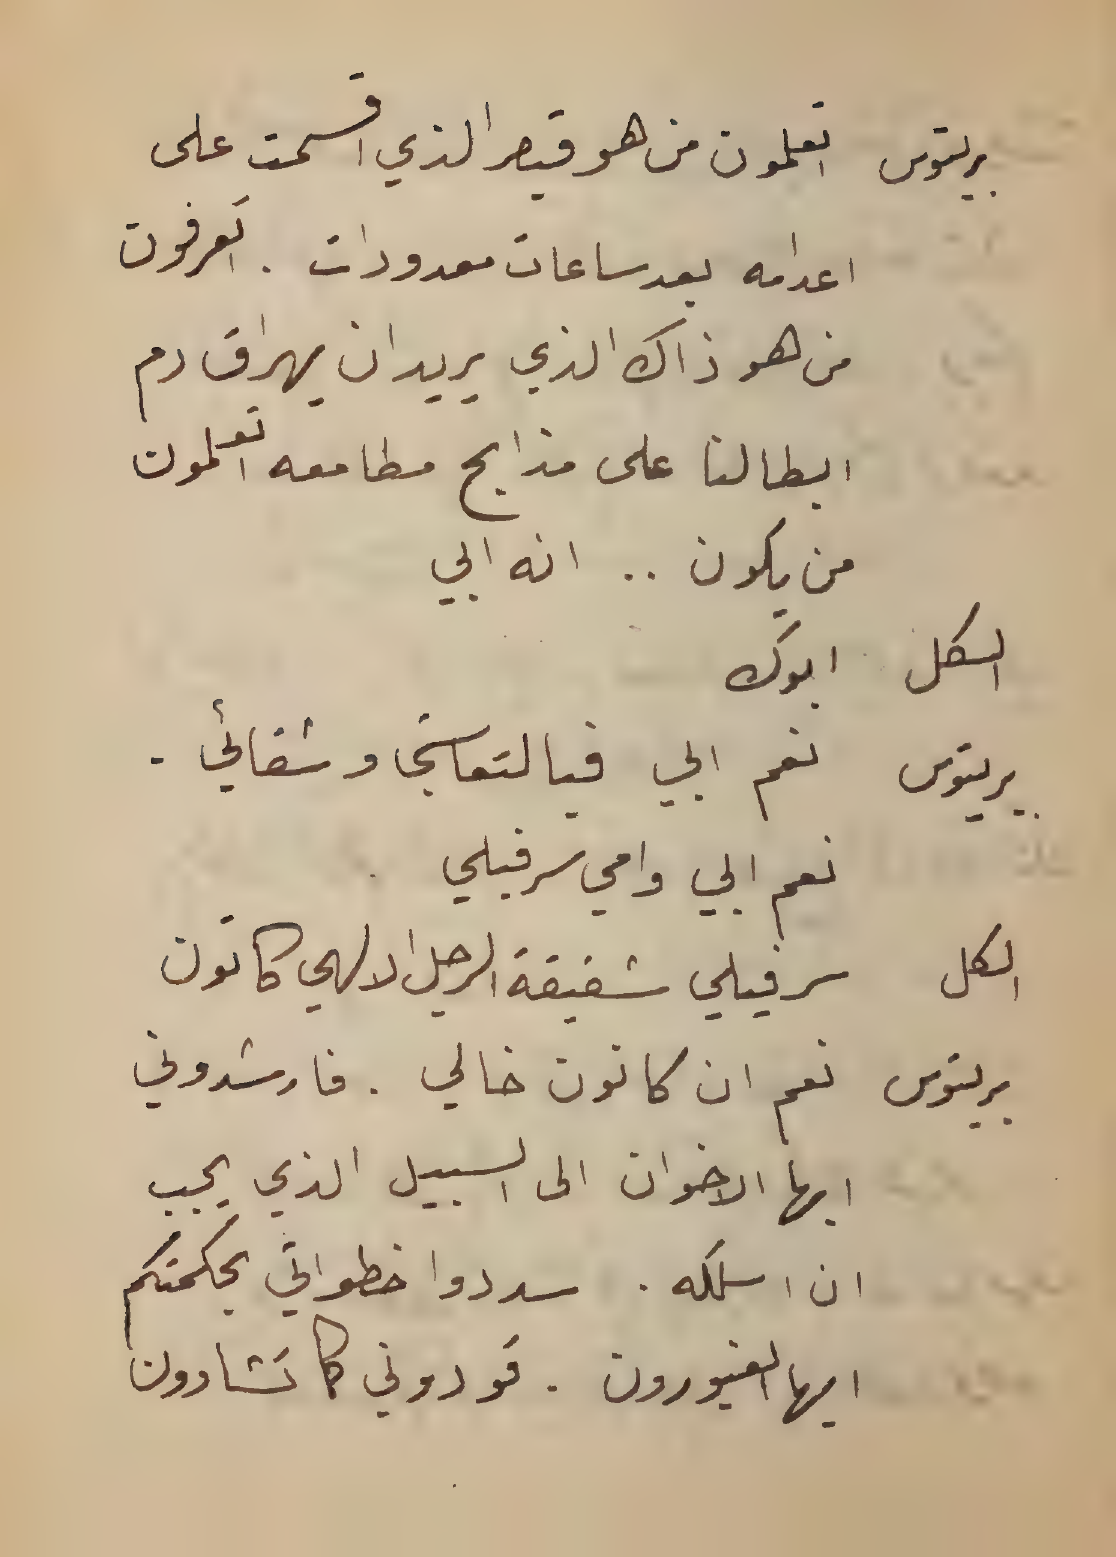 بريتوس اتعلمون من هو قيصر الذي اقسمت على
اعدامه بعد ساعات معدودات . اتعرفون
من هو ذاك الذي يريد ان يهراق دم
ابطالنا على مذابح مطامعه اتعلمون
من يكون .. انه ابي
الكل ابوك
بريتوس نعم ابي فيا لتعاستي وشقائي .
نعم ابي وامي سرفيلي
الكل سرفيلي شقيقة الرجل الالهي كاتون
بريتوس نعم ان كاتون خالي . فارشدوني
ايها الاخوان الى السبيل الذي يجب
ان اسلكه . سددوا خطواتي بحكمتكم
ايها الغيورون . قودوني كما تشاؤون